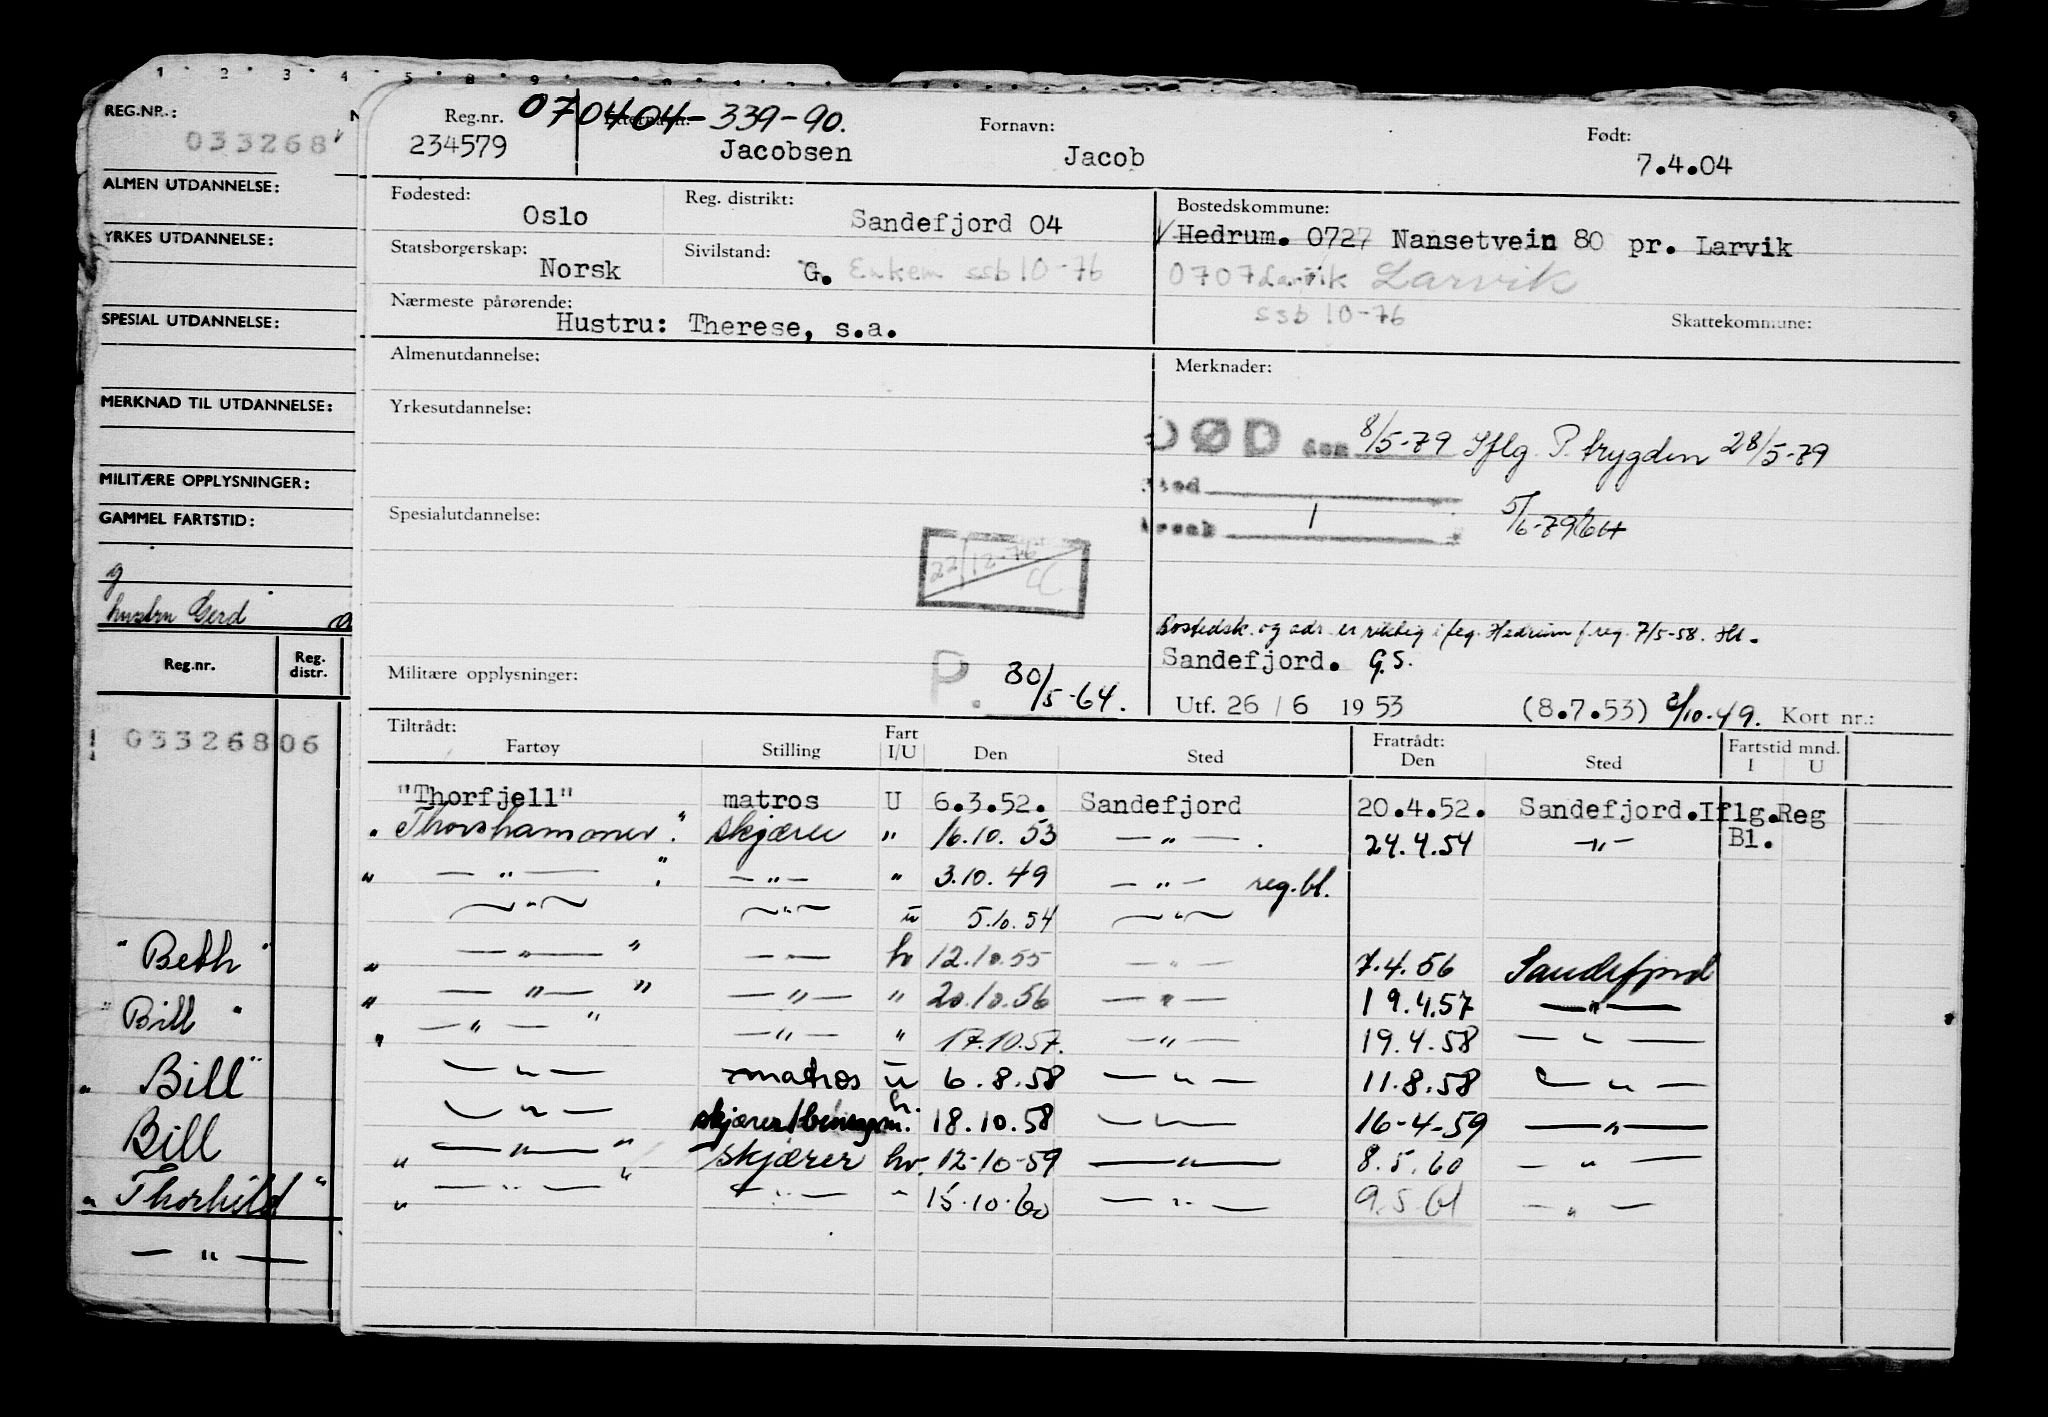 1 2 3 4 5 8 9
REG.NR.:
033268
ALMEN UTDANNELSE:
YRKES UTDANNELSE:
SPESIAL UTDANNELSE:
MERKNAD TIL UTDANNELSE:
MILITÆRE OPPLYSNINGER:
GAMMEL FARTSTID:
g
hustru Gerd
Reg.nr. Reg. distr.
03326806
"Beth"
"Bill"
"Bill"
Bill
"Thorhild"
— " —
Reg.nr. 070404-339-90. Fornavn: Født:
234579 Jacobsen Jacob 7.4.04
Fødested: Oslo Reg. distrikt: Sandefjord 04 Bostedskommune:
Hedrum. 0727 Nansetvein 80 pr. Larvik
Statsborgerskap: Norsk Sivilstand: G. Enkem ssb 10-76 0707 Larvik Larvik
ssb 10-76
Nærmeste pårørende: Hustru: Therese, s.a. Skattekommune:
Almenutdannelse: Merknader:
Yrkesutdannelse:
DØD den 8/5-79 Iflg. P. trygden 28/5-79
Sted
Årsak
5/6-79
Spesialutdannelse:
22/12-76
Bostedsk. og adr. er riktig i flg. Hedrum f.reg. 7/5-58.
Sandefjord. G.S.
Militære opplysninger: P. 30/5-64.
Utf. 26 / 6 1953 (8.7.53) 3/10-49. Kort nr.:
Tiltrådt: Fartøy Stilling Fart I/U Den Sted Fratrådt: Den Sted Fartstid mnd. I U
"Thorfjell" matros U 6.3.52. Sandefjord 20.4.52. Sandefjord.Iflg.Reg
"Thorshammer". skjærer " 16.10.53 — " — . 24.4.54 — " — Bl.
" — " — ". — " — " 3.10.49 — " — reg.bl.
— " — — " — u 5.10.54 — " —
" — " — " — " — hv 12.10.55 — " — 7.4.56 Sandefjord
" — " — " — " — " 20.10.56 — " — 19.4.57 — " —
" — " — " — " — " 17.10.57. — " — 19.4.58 — " —
— " — matros u 6.8.58 — " — 11.8.58 — " —
— " — skjærer/ hv. 18.10.58 — " — 16-4-59 — " —
" — " — " skjærer hv. 12-10-59 — " — 8.5.60 — " —
" — " — " — " — " 15.10.60 — " — 9.5.61 — " —